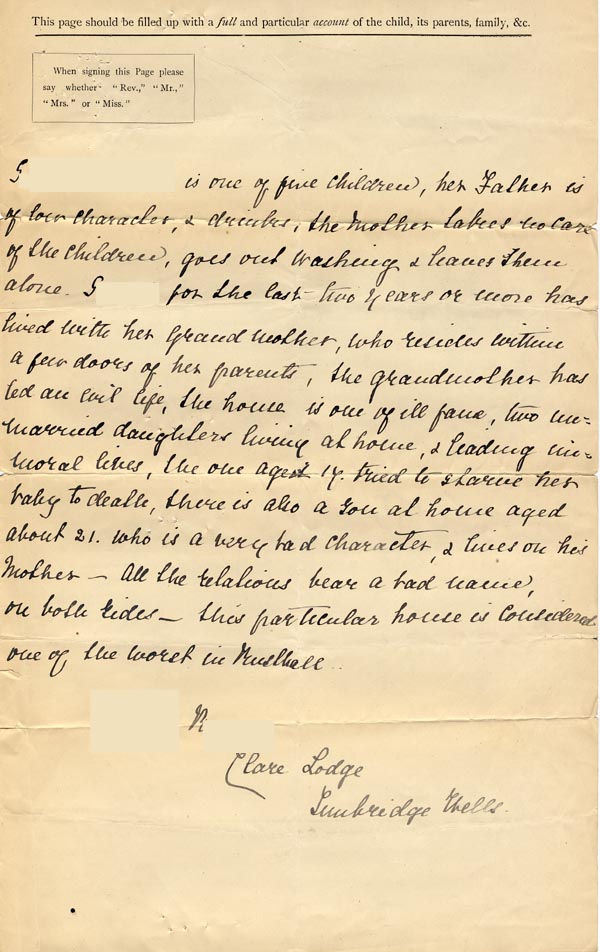 This page should be filled up with a full and particular account of the child, its parents, family, &c.
When signing this Page please
say whether "Rev.," "Mr.,"
"Mrs." or "Miss."
G is one of five children, her Father is
of low character, & drinks, the Mother takes no care
of the children, goes out washing & leaves them
alone. G for the last two years or more has
lived with her Grand mother, who resides within
a few doors of her parents, the grandmother has
led an evil life, the house is one of ill fame, two un=
married daughters living at home, & leading im=
moral lives, the one aged 17. tried to starve her
baby to death, there is also a son at home aged
about 21. who is a very bad character, & lives on his
Mother — All the relations bear a bad name,
on both sides — this particular house is considered
one of the worst in Rusthall.
R
Clare Lodge
Tunbridge Wells.